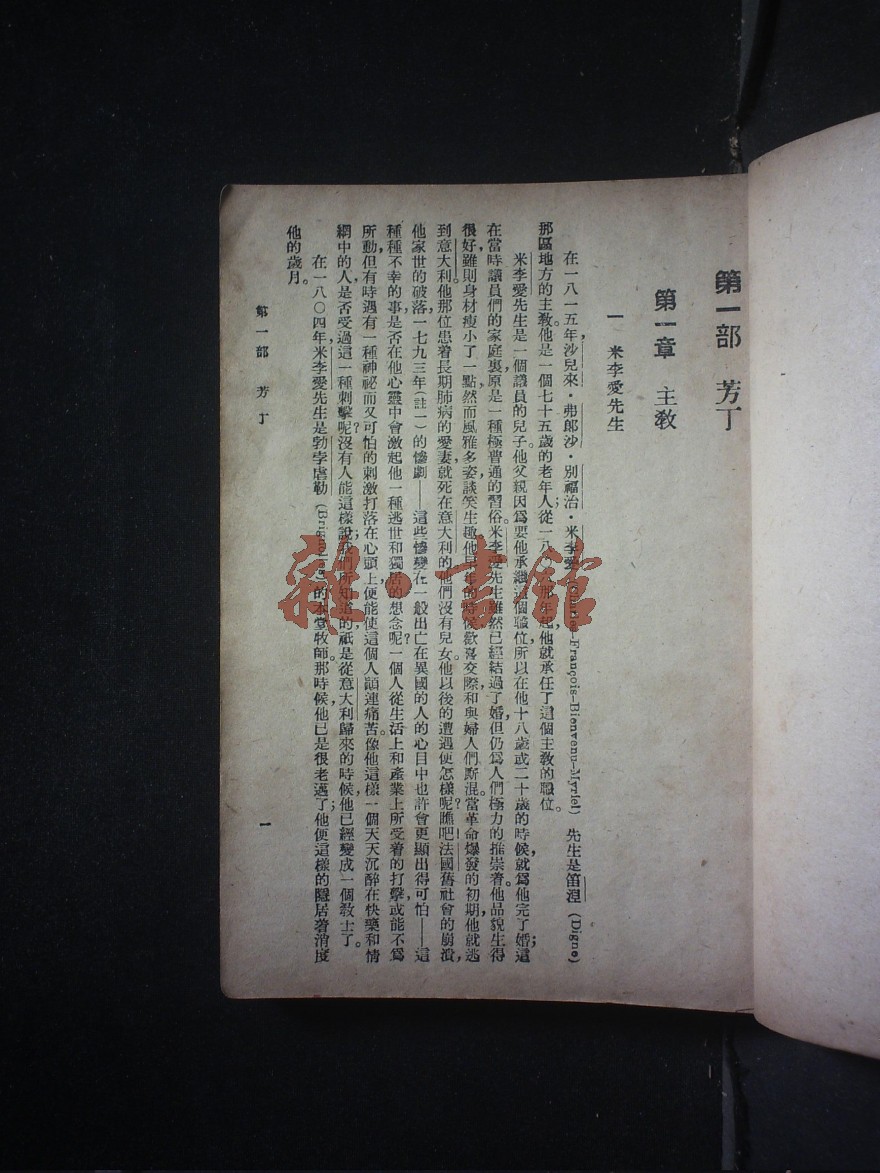 第一部　芳丁
第一章　主教
一　米李愛先生
在一八一五年，沙兒來·弗郎沙·別福治·米李愛 (Charles-François-Bienvenu-Myriel) 先生是笛湼 (Digne)
那區地方的主教。他是一個七十五歲的老年人；從一八 那年起，他就承任了這個主教的職位。
米李愛先生是一個議員的兒子。他父親因爲要他承繼這個職位，所以在他十八歲或二十歲的時候，就爲他完了婚；這
在當時議員們的家庭裏，原是一種極普通的習俗。米李愛先生雖然已經結過了婚，但仍爲人們極力的推崇着。他品貌生得
很好，雖則身材瘦小了一點，然而風雅多姿，談笑生趣。他早年的時候，歡喜交際，和與婦人們廝混。當革命爆發的初期，他就逃
到意大利。他那位患着長期肺病的愛妻，就死在意大利的。他們沒有兒女。他以後的遭遇便怎樣呢？瞧吧！法國舊社會的崩潰，
他家世的破落，一七九三年（註一）的慘劇——這些慘變在一般出亡在異國的人的心目中也許會更顯出得可怕——這
種種不幸的事是否在他心靈中會激起他一種逃世和獨居的想念呢？一個人從生活上和產業上所受着的打擊，或能不爲
所動，但有時遇有一種神祕而又可怕的刺激打落在心頭上，便能使這個人顛連痛苦。像他這樣一個天天沉醉在快樂和情
網中的人，是否受過這一種刺擊呢？沒有人能這樣說；我們所知道的，祇是從意大利歸來的時候，他已經變成一個教士了。
在一八〇四年，米李愛先生是勃孛虐勒 的本堂牧師。那時候，他已是很老邁了；他便這樣的隱居着消度
他的歲月。
第一部　芳丁
一
雜·書館